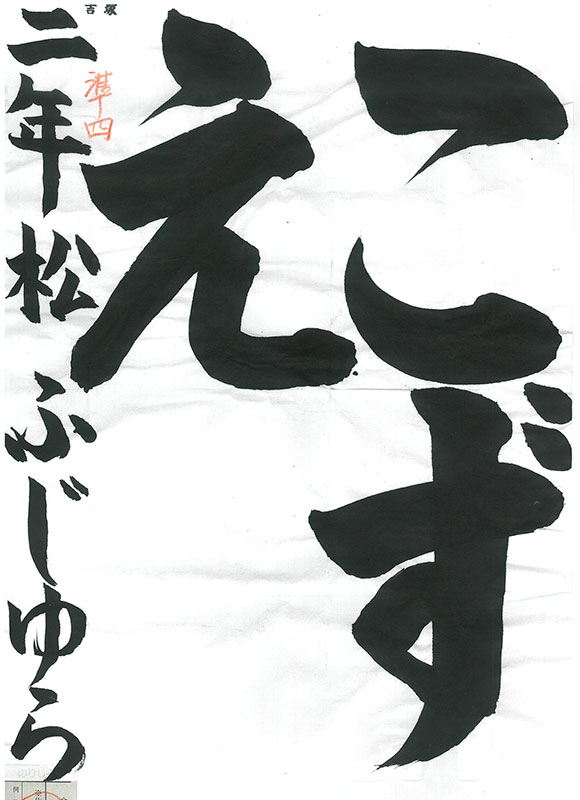 こず
え
吉塚
準四
二年松 ふじゆら